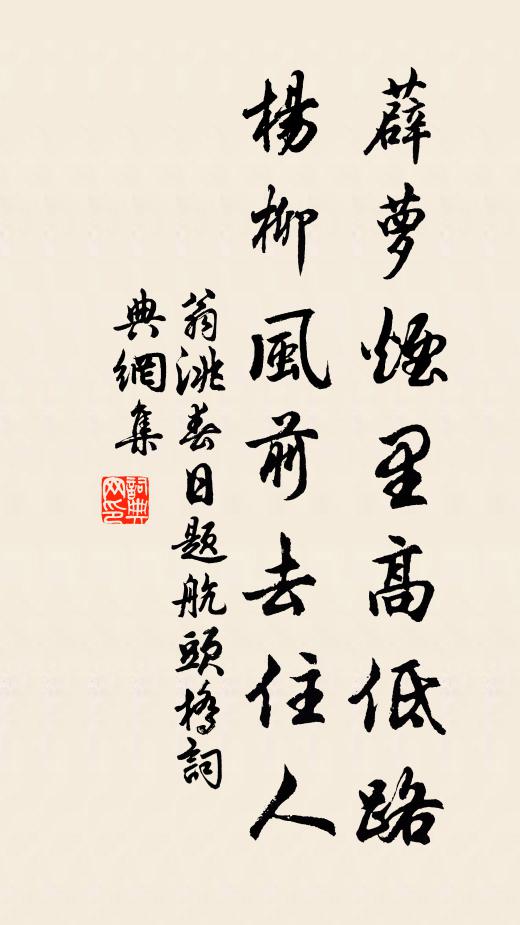 薜萝煙里高低路
楊柳風前去住人
翁洮春日題航頭橋詞
典網集
詞典
网印